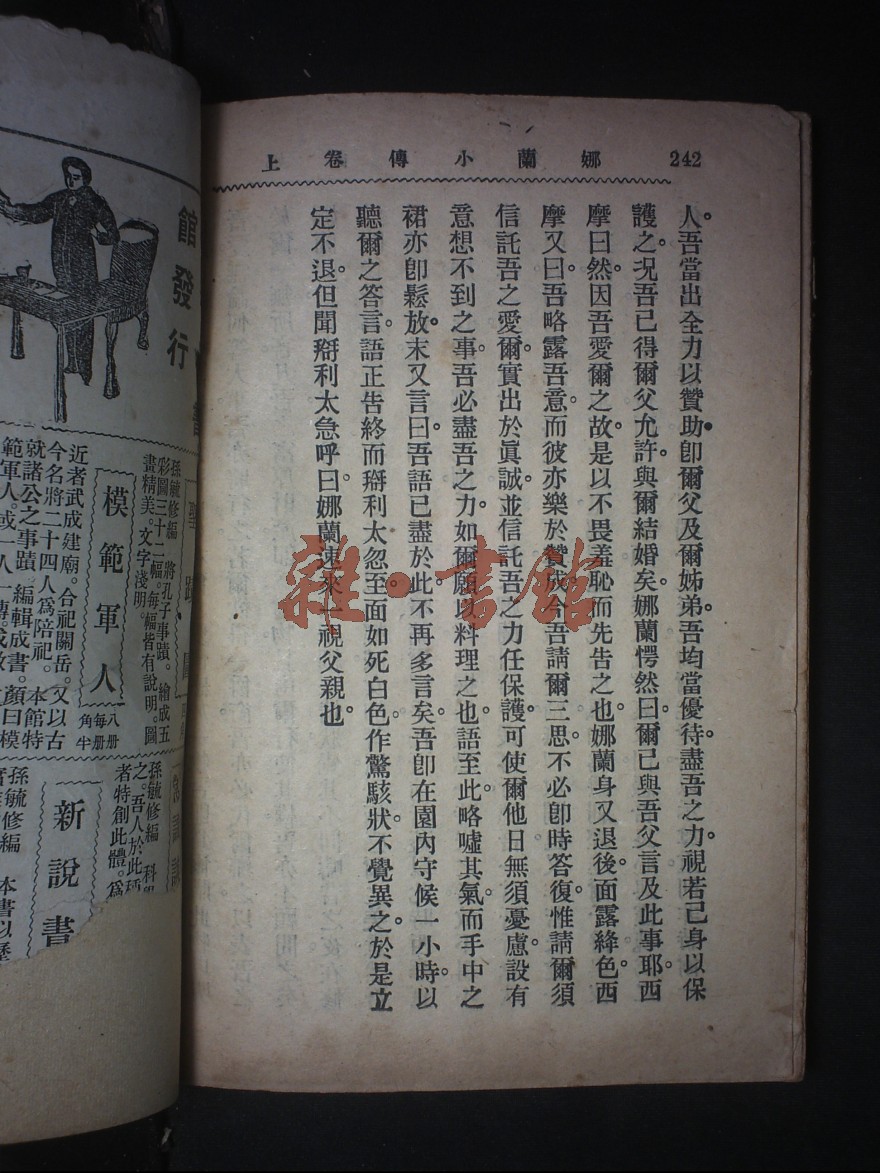 242
娜蘭小傳卷上
人。吾當出全力以贊助。卽爾父及爾姊弟。吾均當優待。盡吾之力。視若已身以保
護之。况吾已得爾父允許。與爾結婚矣。娜蘭愕然曰。爾已與吾父言及此事耶。西
摩曰。然。因吾愛爾之故。是以不畏羞恥而先告之也。娜蘭身又退後。面露絳色。西
摩又曰。吾略露吾意。而彼亦樂於贊成。今吾請爾三思。不必卽時答復。惟請爾須
信託吾之愛爾。實出於眞誠。並信託吾之力任保護。可使爾他日無須憂慮。設有
意想不到之事。吾必盡吾之力。如爾願以料理之也。語至此。略噓其氣。而手中之
裙亦卽鬆放。末又言曰。吾語已盡於此。不再多言矣。吾卽在園內守候一小時。以
聽爾之答言。語正告終。而搿利太忽至。面如死白色。作驚駭狀。不覺異之。於是立
定不退。但聞搿利太急呼曰。娜蘭速來一視父親也。
雜·書館
館發行
孫毓修編　將孔子事蹟。繪成五
彩圖三十二幅。每幅皆有說明。圖
畫精美。文字淺明。
模範軍人
八册
每册
角半
近者武成建廟。合祀關岳。又以古
今名將二十四人爲陪祀。本館特
就諸公之事蹟。編輯成書。顏曰模
範軍人。或一人一傳。或數
孫毓修編　科
之。吾人於此
者特創此體。爲
新說書
孫毓修編　本書以歷